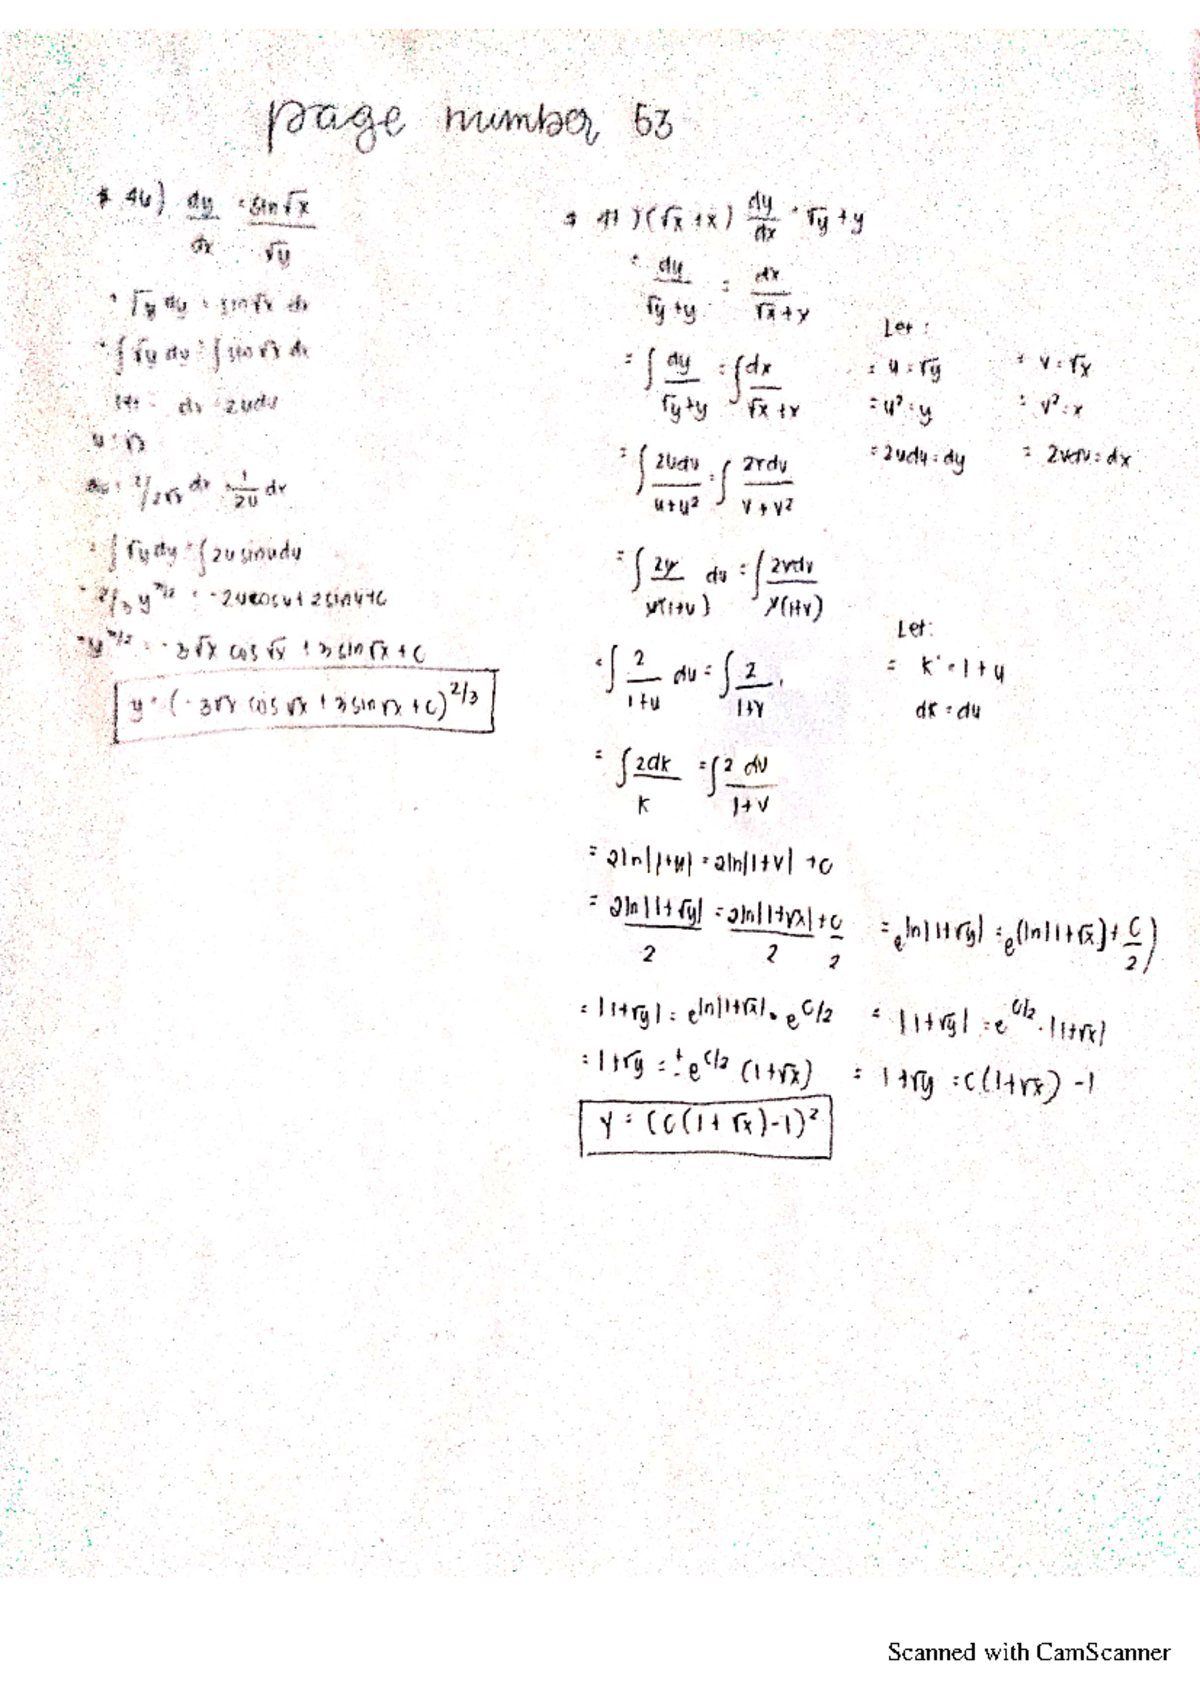 page number 53
46) dy/dx = sin√x/√y
= √y dy = sin√x dx
= ∫√y dy = ∫sin√x dx
dx = 2udu
u = √x
1/2√x dx = 1/2u dx
= ∫√y dy = ∫2u sinu du
2/3 y^3/2 = -2ucosu + 2sinu + C
y^3/2 = -3√x cos√x + 3sin√x + C
y = (-3√x cos√x + 3sin√x + C)^2/3
(√x + x) dy/dx = √y + y
= dy/√y+y = dx/√x+x
= ∫dy/√y+y = ∫dx/√x+x
Let:
= u = √y = v = √x
= u² = y = v² = x
= 2udu = dy = 2vdv = dx
= ∫2udu/u+u² = ∫2vdv/v+v²
= ∫2u/u(1+u) du = ∫2vdv/v(1+v)
= ∫2/1+u du = ∫2/1+v
Let:
= k = 1+u
dk = du
= ∫2dk/k = ∫2 dv/1+v
= 2ln|1+u| = 2ln|1+v| + C
= 2ln|1+√y|/2 = 2ln|1+√x|/2 + C/2 = e^ln|1+√y| = e^(ln|1+√x|+C/2)
= |1+√y| = e^ln|1+√x| • e^C/2 = |1+√y| = e^C/2 · |1+√x|
= 1+√y = ±e^C/2 (1+√x) = 1+√y = C(1+√x) -1
Y = (C(1+√x)-1)²
Scanned with CamScanner